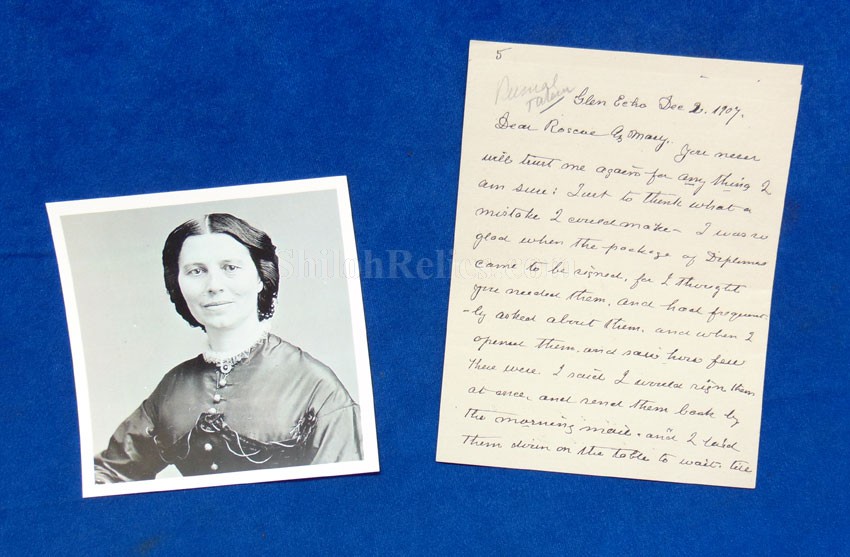 5
Glen Echo Dec 2. 1907.
Dear Roscoe & Mary. You never
will trust me again for any thing I
am sure; Just to think what a
mistake I could make - I was so
glad when the package of Diplomas
came to be signed, for I thought
you needed them, and had frequent
-ly asked about them. and when I
opened them, and saw how few
there were I said I would sign them
at once, and send them back by
the morning mail. and I laid
them down on the table to wait. the
ShilohRelics.com